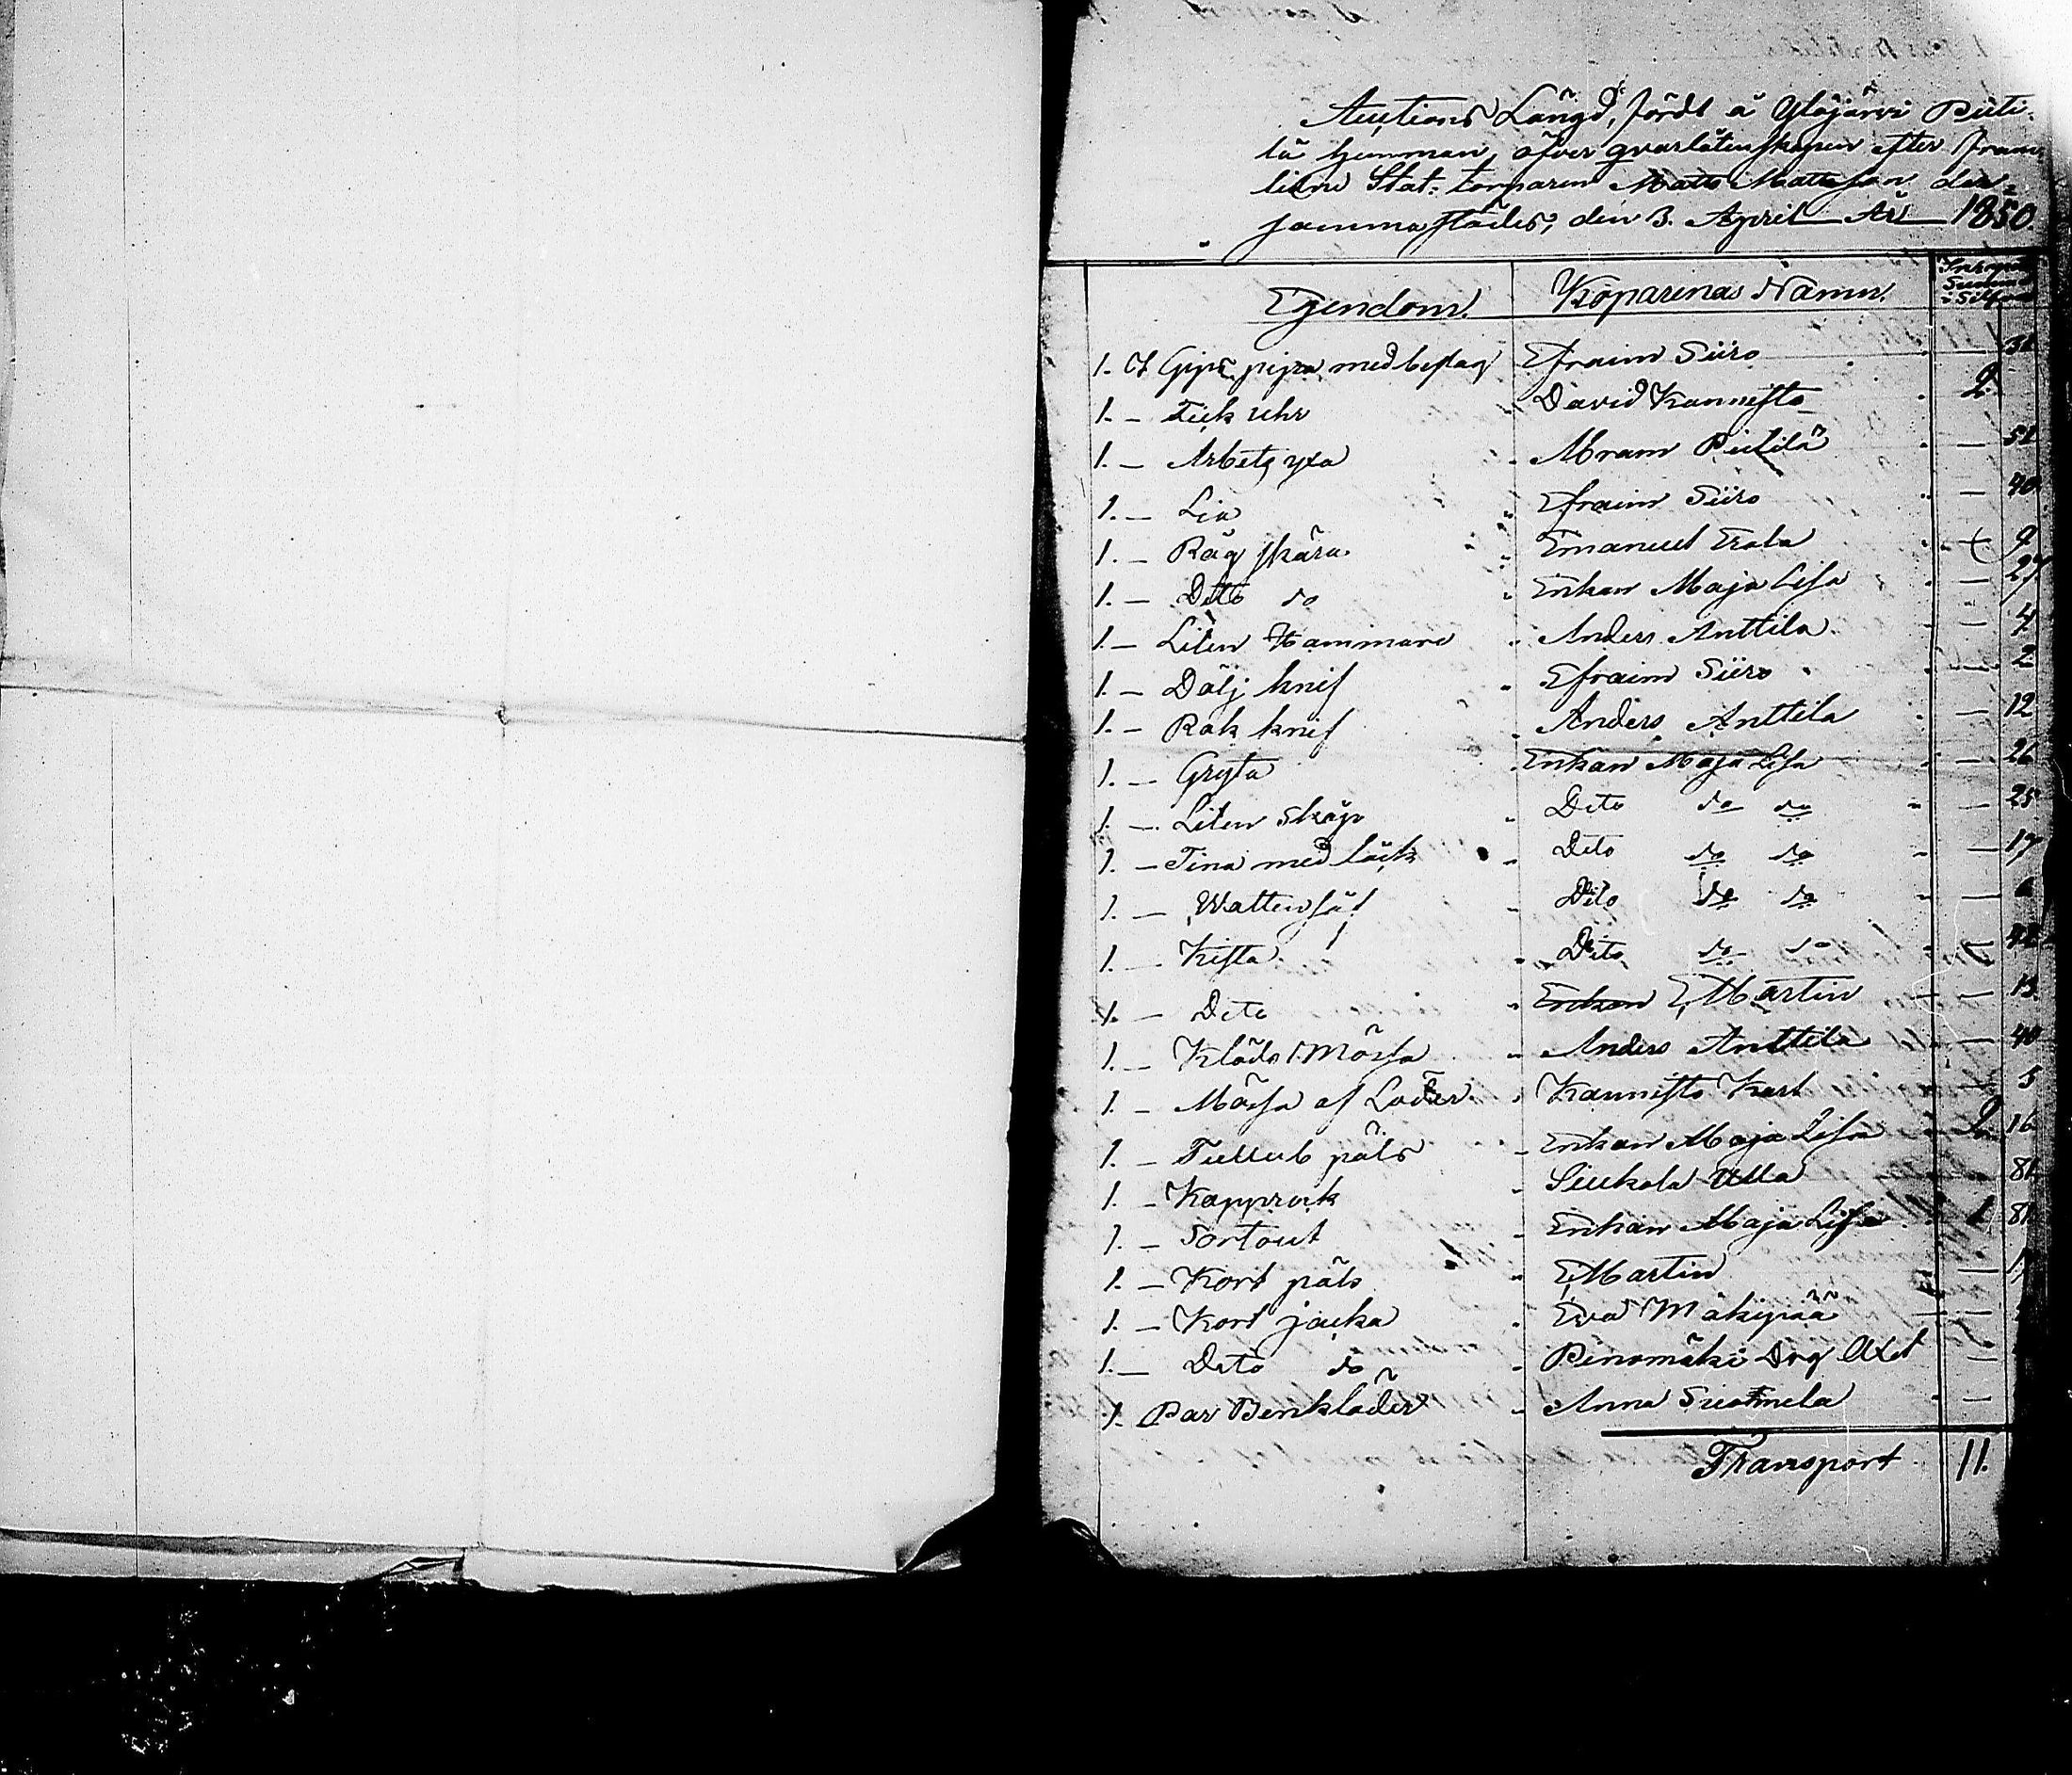 Auctions Längd, förd å Ylöjärvi Pieti-
lä hemman, öfver qvarlåtenskapen efter fram-
lidne Stat-torparen Matts Mattsson der-
sammastädes, den 3. April År 1850.
Egendom. Köparenas Namn.
1. st Gips pipa med beslag Efraim Siiro — 31
1. — Fick uhr David Kannisto 2.
1. — Arbets yxa Abram Pietilä — 51
1. — Lia Efraim Siiro — 40
1. — Råg skära Emanuel Erola 9
1. — Dito do Enkan Maja Lisa — 27
1. — Liten Hammare Anders Anttila — 4
1. — Dälj knif Efraim Siiro — 2
1. — Rak knif Anders Anttila — 12
1. — Gryta Enkan Maja Lisa — 26
1. — Liten Skåp Dito do do — 25
1. — Tina med låck Dito do do — 17
1. — Wattenså Dito do do — 6
1. — Kista Dito do do — 42
1. — Dito Enkan E. Martin — 13
1. — Kläds Mössa Anders Anttila — 40
1. — Mössa af Läder Kannisto Karl 5
1. — Tullub päls Enkan Maja Lisa 2 16
1. — Kapprock Siukola Ulla — 81
1. — Sortout Enkan Maja Lisa 1 81
1. — Kort päls E. Martin —
1. — Kort jacka Eva Mäkipää —
1. — Dito do Pinomäki Drg Axel —
1. Par Benkläder Anna Suomela —
Transport 11.